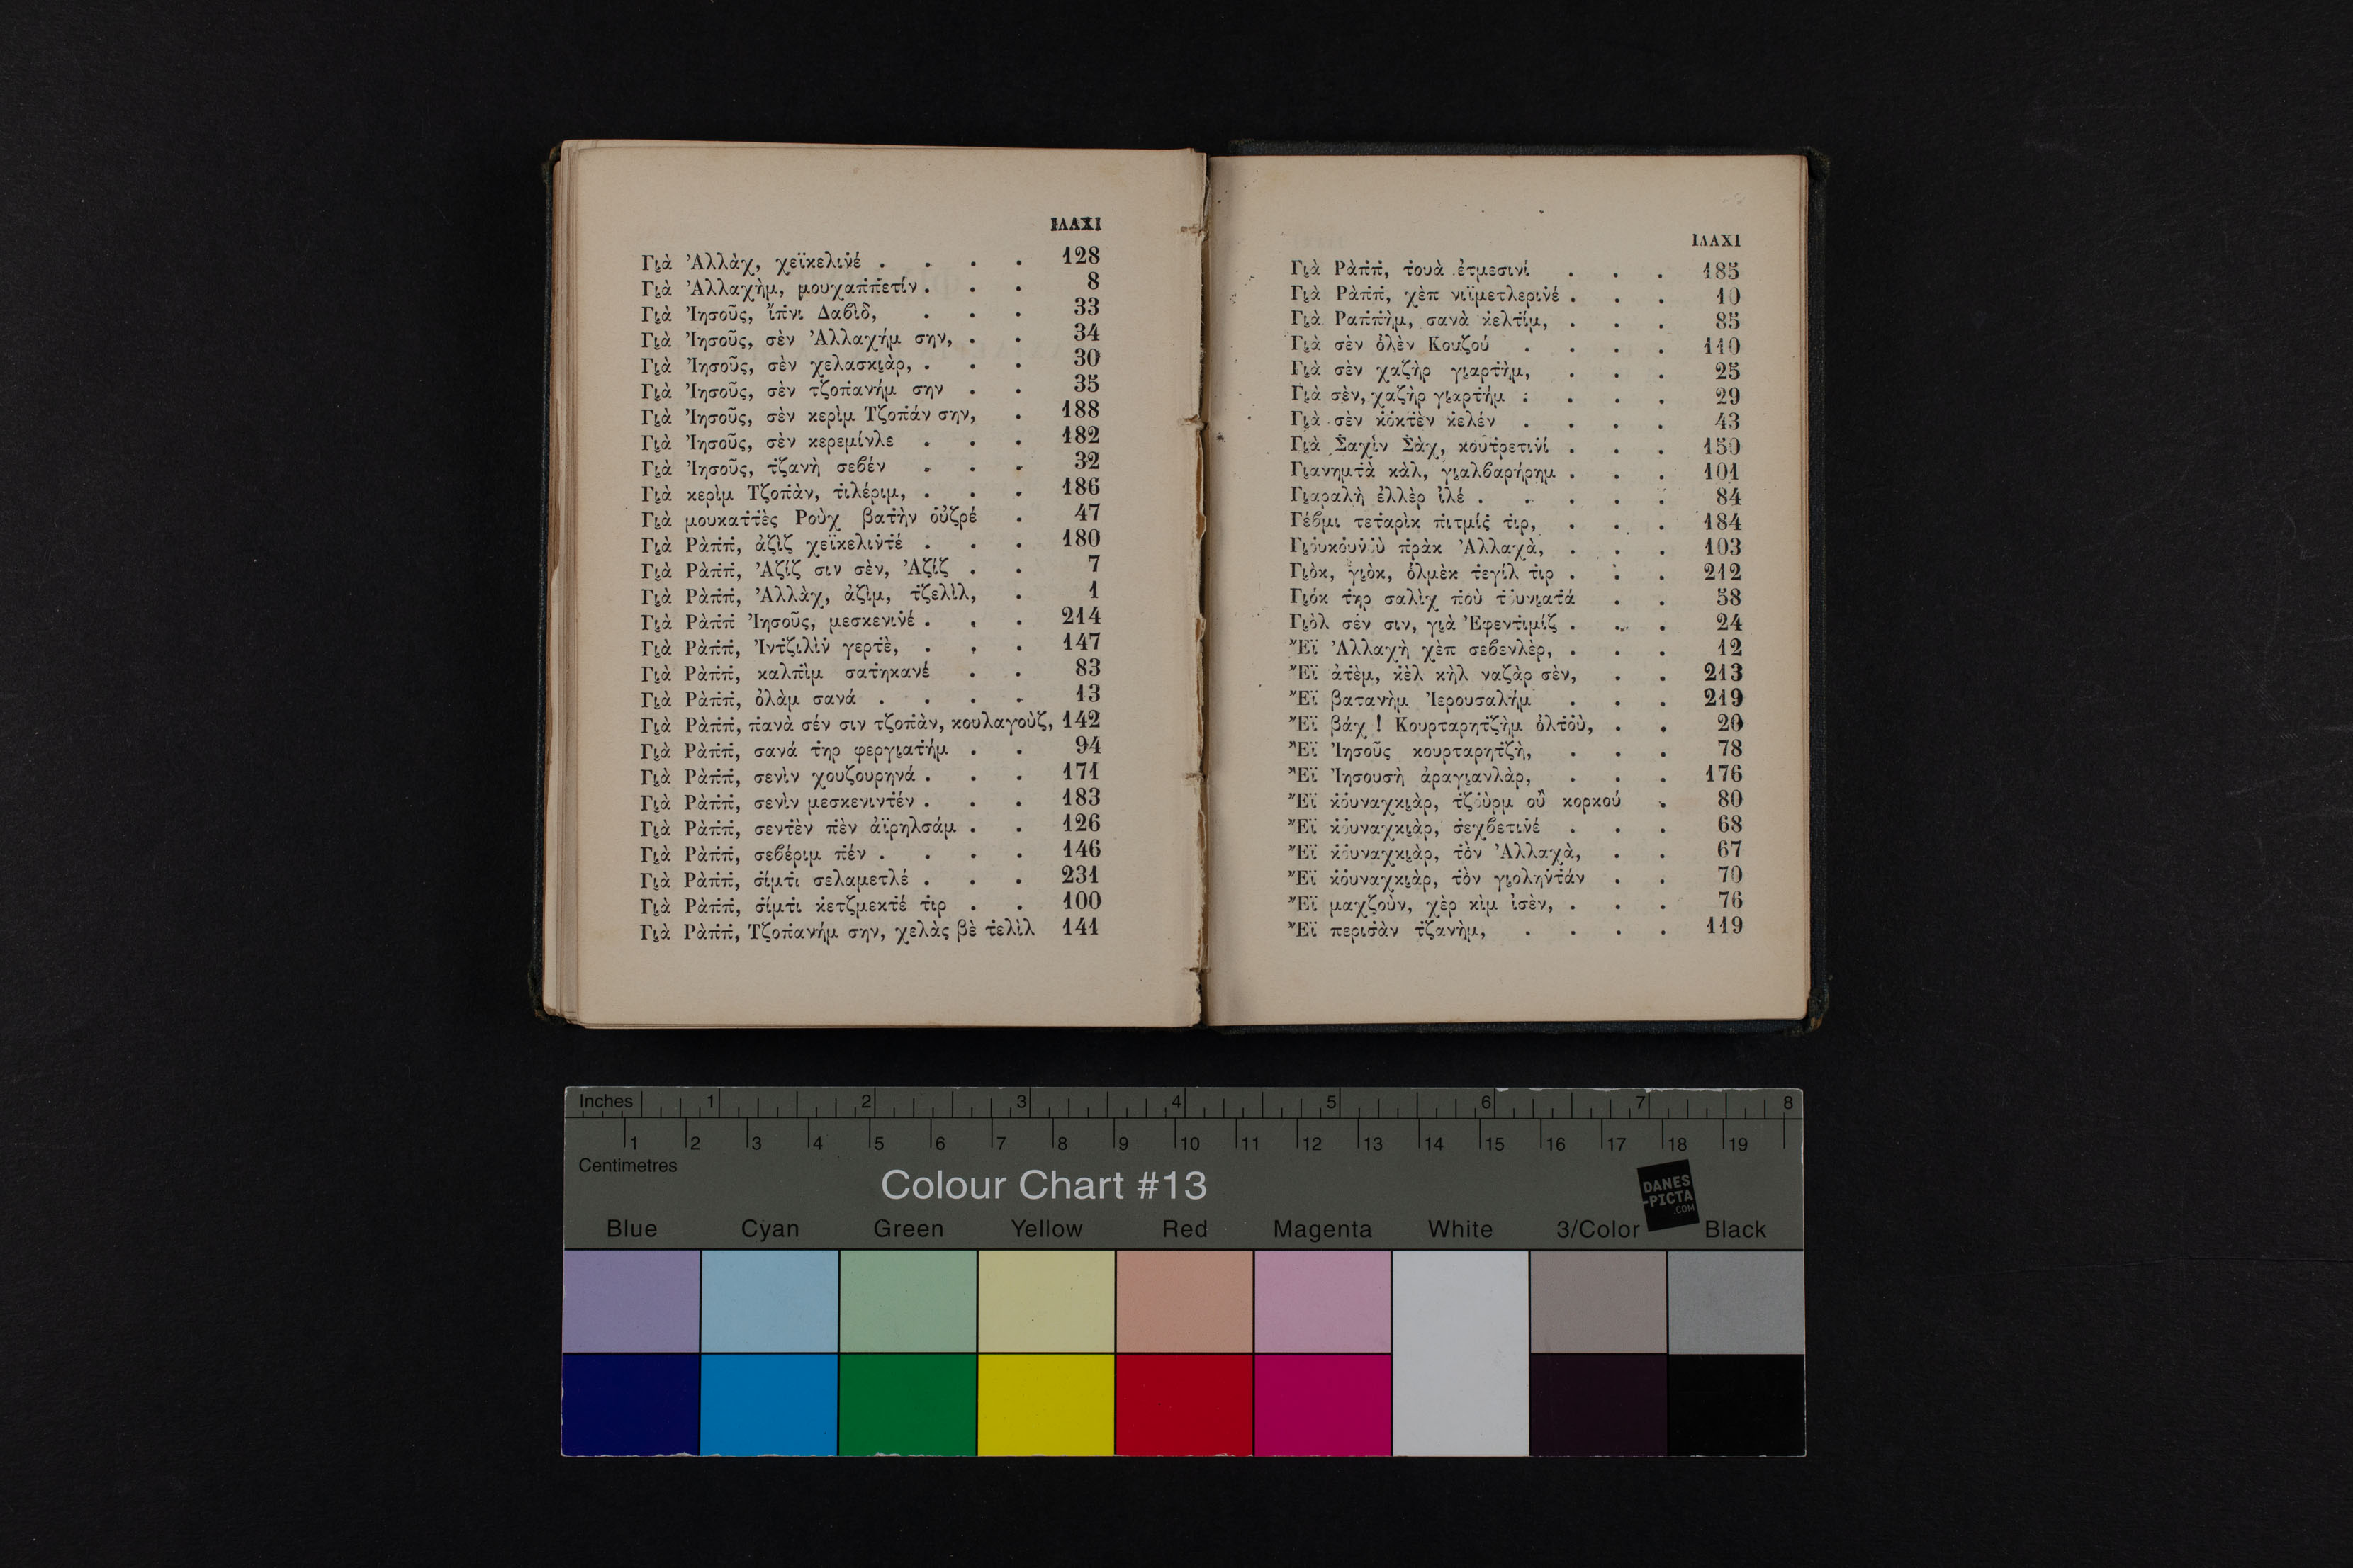 ΙΛΑΧΙ
Γιὰ Ἀλλὰχ, χεϊκελινέ . . . . 128
Γιὰ Ἀλλαχὴμ, μουχαππετίν . . . 8
Γιὰ Ἰησοῦς, ἴπνι Δαβὶδ, . . . 33
Γιὰ Ἰησοῦς, σὲν Ἀλλαχήμ σην, . . 34
Γιὰ Ἰησοῦς, σὲν χελασκιὰρ, . . . 30
Γιὰ Ἰησοῦς, σὲν τζοπανήμ σην . . 35
Γιὰ Ἰησοῦς, σὲν κερὶμ Τζοπάν σην, . 188
Γιὰ Ἰησοῦς, σὲν κερεμίνλε . . . 182
Γιὰ Ἰησοῦς, τζανὴ σεβέν . . . 32
Γιὰ κερὶμ Τζοπὰν, τιλέριμ, . . . 186
Γιὰ μουκαττὲς Ροὺχ βατὴν οὐζρέ . 47
Γιὰ Ρὰππ, ἀζὶζ χεϊκελιντέ . . . 180
Γιὰ Ρὰππ, Ἀζίζ σιν σὲν, Ἀζίζ . . 7
Γιὰ Ρὰππ, Ἀλλὰχ, ἀζὶμ, τζελὶλ, . 1
Γιὰ Ρὰππ Ἰησοῦς, μεσκενινέ . . . 214
Γιὰ Ρὰππ, Ἰντζιλὶν γερτὲ, . . . 147
Γιὰ Ρὰππ, καλπὶμ σατηκανέ . . 83
Γιὰ Ρὰππ, ὀλὰμ σανά . . . . 13
Γιὰ Ρὰππ, πανὰ σέν σιν τζοπὰν, κουλαγοὺζ, 142
Γιὰ Ρὰππ, σανά τηρ φεργιατήμ . . 94
Γιὰ Ρὰππ, σενὶν χουζουρηνά . . . 171
Γιὰ Ρὰππ, σενὶν μεσκενιντέν . . . 183
Γιὰ Ρὰππ, σεντὲν πὲν ἀϊρηλσάμ . . 126
Γιὰ Ρὰππ, σεβέριμ πέν . . . . 146
Γιὰ Ρὰππ, σίμτι σελαμετλέ . . . 231
Γιὰ Ρὰππ, σίμτι κετζμεκτέ τιρ . . 100
Γιὰ Ρὰππ, Τζοπανήμ σην, χελὰς βὲ τελὶλ 141
ΙΛΑΧΙ
Γιὰ Ρὰππ, τουὰ ἐτμεσινί . . . 185
Γιὰ Ρὰππ, χὲπ νιϊμετλερινέ . . . 10
Γιὰ Ραππὴμ, σανὰ κελτίμ, . . . 85
Γιὰ σὲν ὀλὲν Κουζού . . . . 110
Γιὰ σὲν χαζὴρ γιαρτὴμ, . . . 25
Γιὰ σὲν, χαζὴρ γιαρτήμ . . . . 29
Γιὰ σὲν κὸκτὲν κελέν . . . . 43
Γιὰ Σαχὶν Σὰχ, κουτρετινί . . . 150
Γιανημτὰ κὰλ, γιαλβαρήρημ . . . 101
Γιαραλὴ ἐλλὲρ ἰλέ . . . . . 84
Γέβμι τεταρὶκ πιτμίς τιρ, . . . 184
Γιουκουνοὺ πρὰκ Ἀλλαχὰ, . . . 103
Γιὸκ, γιὸκ, ὀλμὲκ τεγίλ τιρ . . . 212
Γιόκ τηρ σαλὶχ ποὺ τουνιατά . . 58
Γιὸλ σέν σιν, γιὰ Ἐφεντιμίζ . . . 24
Ἔϊ Ἀλλαχὴ χὲπ σεβενλὲρ, . . . 12
Ἔϊ ἀτὲμ, κὲλ κὴλ ναζὰρ σὲν, . . 213
Ἔϊ βατανὴμ Ἱερουσαλήμ . . . 219
Ἔϊ βάχ ! Κουρταρητζὴμ ὀλτοὺ, . . 20
Ἔϊ Ἰησοῦς κουρταρητζὴ, . . . 78
Ἔϊ Ἰησουσὴ ἀραγιανλὰρ, . . . 176
Ἔϊ κουναχκιὰρ, τζοὺρμ οὒ κορκού . 80
Ἔϊ κουναχκιὰρ, σεχβετινέ . . . 68
Ἔϊ κουναχκιὰρ, τὸν Ἀλλαχὰ, . . 67
Ἔϊ κουναχκιὰρ, τὸν γιοληντάν . . 70
Ἔϊ μαχζοὺν, χὲρ κὶμ ἰσὲν, . . . 76
Ἔϊ περισὰν τζανὴμ, . . . . 119
Inches 1 2 3 4 5 6 7 8
1 2 3 4 5 6 7 8 9 10 11 12 13 14 15 16 17 18 19
Centimetres
Colour Chart #13
DANES
-PICTA
.COM
Blue Cyan Green Yellow Red Magenta White 3/Color Black